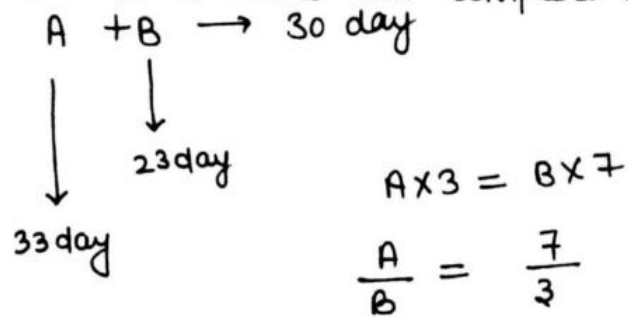 A + B → 30 day
23 day
33 day
A × 3 = B × 7
A/B = 7/3